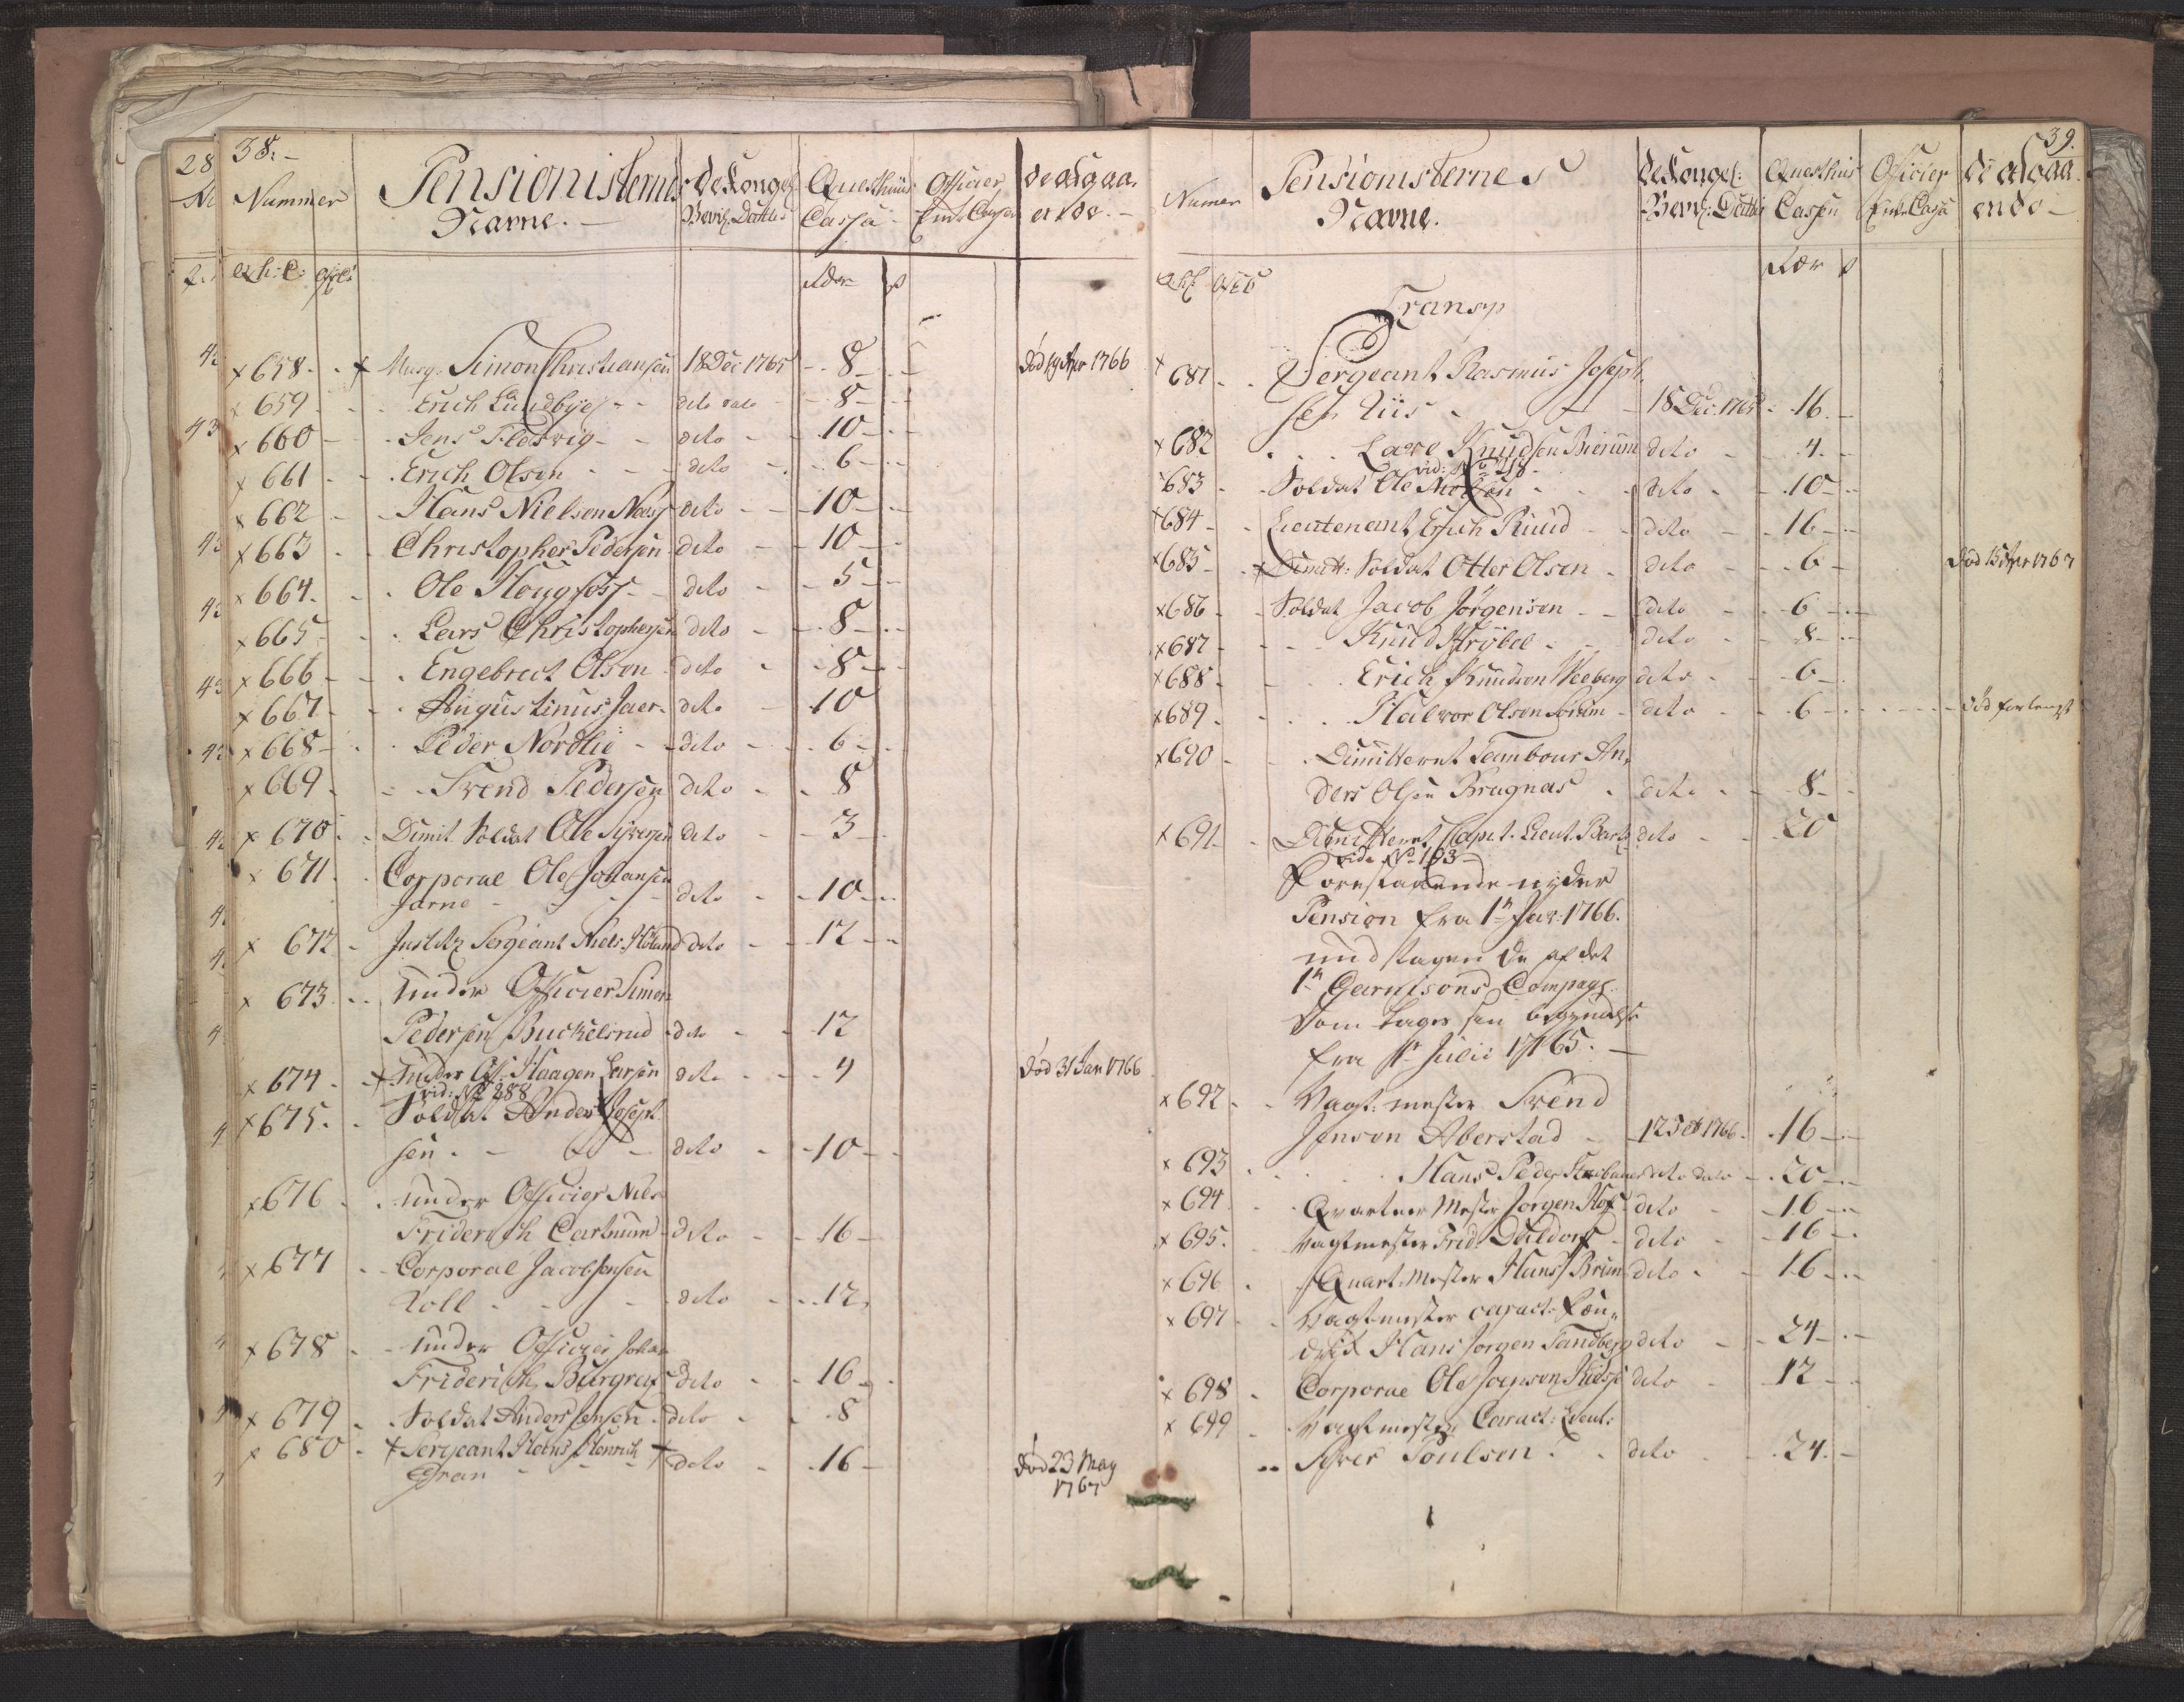 38.
Nummer
Pensionisternes
Navne.
de Kongel:
Bevilg: Datus
Questhuus
Cassa
Officier
Enke Cassa
de afgaa-
ende.
Rdr ß
× 658 × Musq. Simon Christiansen 18 Dec 1765 8 død 19 Apr 1766
× 659 Erich Lundbye dito dato 8
× 660 Jens Fledvig dito 10
× 661 Erich Olsen dito 6
× 662 Hans Nielsen Næss dito 10
× 663 Christopher Pedersen dito 10
× 664 Ole Hougfoss dito 5
× 665 Lars Christophersen dito 8
× 666 Engebrect Olsen dito 8
× 667 Augustinus Jaer dito 10
× 668 Peder Nordlie dito 6
× 669 Svend Pedersen dito 8
× 670 Dimit. Soldat Ole Syversen dito 3
× 671 Corporal Ole Johansen
Jarne dito 10
× 672 Sergeant Niels Høland dito 12
× 673 Under Officier Simon
Pedersen Buckelsrud dito 12
× 674 × Under Off. Haagen Larsen dito 4 død 31 Jan 1766
vid: No 288
× 675 Soldat Anders Joseph-
sen dito 10
× 676 Under Officier Niels
Friderich Carlnum dito 16
× 677 Corporal Jacob Jensen
Koll dito 12
× 678 Under Officier Johan
Friderich Burgraf dito 16
× 679 Soldat Anders Jensen dito 8
× 680 × Sergeant Hans Henrich
Gran dito 16 død 23 May
1767
39.
Numer
Pensionisternes
Navne.
de Kongel:
Bevilg: Datus
Questhuus
Cassa
Officier
Enke Cassa
de afgaa-
ende
Rdr ß
Transp
× 681 Sergeant Rasmus Joseph-
sen Riis 18 Dec. 1765 16
× 682 Lars Knudsen Bierum dito 4
vid: No 218
× 683 Soldat Ole dito 10
× 684 Lieutenant Erich Ruud dito 16
× 685 × Dimitt: Soldat Otter Olsen dito 6 død 15 Apr 1767
× 686 Soldat Jacob Jörgensen dito 6
× 687 Knud Strøbel dito 8
× 688 Erich Knudsen Weeberg dito 6
× 689 Halvor Olsen dito 6 død forlengst
× 690 Dimitteret Tambour An-
ders Olsen Bragnæs dito 8
× 691 Dimitteret Capit. Lieut. Barth dito 20
vide No 193
Forestaaende nyder
Pension fra 1te Jan: 1766.
undtagen de af det
1te Garnisons Compagn.
som tager sin begyndelse
fra 1te Julii 1765.
× 692 Vagt: mester Svend
Jensen Aberstad 12 Feb 1766 16
× 693 Hans Peder dito dato 20
× 694 Qvarteer Mester Jorgen Hof dito 16
× 695 Vagtmester Frid: Duldorf dito 16
× 696 Quart: Mester Hans Brun dito 16
× 697 Vagtmester caract: Fæn-
drich Hans Jorgen Sandberg dito 24
× 698 Corporal Ole Joensen dito 12
× 699 Vagtmester Caract: Lieut:
Iver Poulsen dito 24